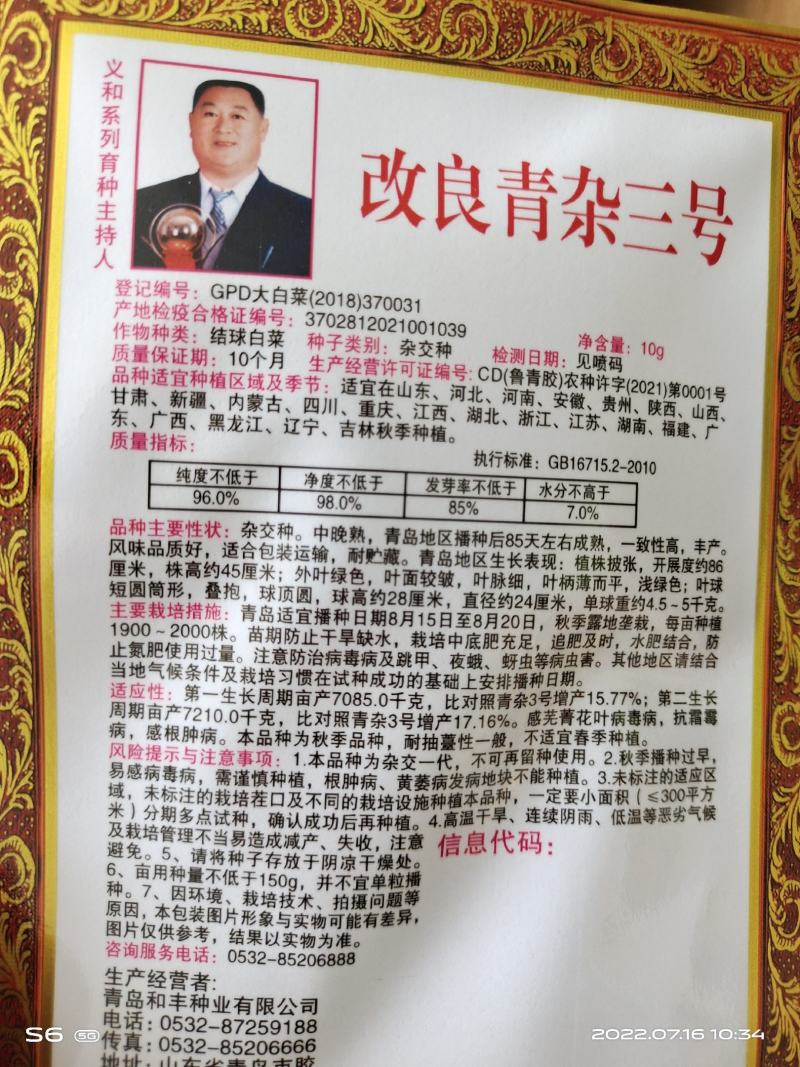 义和系列育种主持人
改良青杂三号
登记编号：GPD大白菜(2018)370031
产地检疫合格证编号：3702812021001039
净含量：10g
作物种类：结球白菜 种子类别：杂交种 检测日期：见喷码
质量保证期：10个月 生产经营许可证编号:CD(鲁青胶)农种许字(2021)第0001号
品种适宜种植区域及季节：适宜在山东、河北、河南、安徽、贵州、陕西、山西、
甘肃、新疆、内蒙古、四川、重庆、江西、湖北、浙江、江苏、湖南、福建、广
东、广西、黑龙江、辽宁、吉林秋季种植。
质量指标：
执行标准：GB16715.2-2010
纯度不低于 净度不低于 发芽率不低于 水分不高于
96.0% 98.0% 85% 7.0%
品种主要性状：杂交种。中晚熟，青岛地区播种后85天左右成熟，一致性高，丰产。
风味品质好，适合包装运输，耐贮藏。青岛地区生长表现：植株披张，开展度约86
厘米，株高约45厘米；外叶绿色，叶面较皱，叶脉细，叶柄薄而平，浅绿色；叶球
短圆筒形，叠抱，球顶圆，球高约28厘米，直径约24厘米，单球重约4.5～5千克。
主要栽培措施：青岛适宜播种日期8月15日至8月20日，秋季露地垄栽，每亩种植
1900～2000株。苗期防止干旱缺水，栽培中底肥充足，追肥及时，水肥结合，防
止氮肥使用过量。注意防治病毒病及跳甲、夜蛾、蚜虫等病虫害。其他地区请结合
当地气候条件及栽培习惯在试种成功的基础上安排播种日期。
适应性：第一生长周期亩产7085.0千克，比对照青杂3号增产15.77%；第二生长
周期亩产7210.0千克，比对照青杂3号增产17.16%。感芜菁花叶病毒病，抗霜霉
病，感根肿病。本品种为秋季品种，耐抽薹性一般，不适宜春季种植。
风险提示与注意事项：1.本品种为杂交一代，不可再留种使用。2.秋季播种过早，
易感病毒病，需谨慎种植，根肿病、黄萎病发病地块不能种植。3.未标注的适应区
域，未标注的栽培茬口及不同的栽培设施种植本品种，一定要小面积（≤300平方
米）分期多点试种，确认成功后再种植。4.高温干旱、连续阴雨、低温等恶劣气候
及栽培管理不当易造成减产、失收，注意
避免。5、请将种子存放于阴凉干燥处。
6、亩用种量不低于150g，并不宜单粒播
种。7、因环境、栽培技术、拍摄问题等
原因，本包装图片形象与实物可能有差异，
图片仅供参考，结果以实物为准。
信息代码：
咨询服务电话：0532-85206888
生产经营者：
青岛和丰种业有限公司
电话：0532-87259188
传真：0532-85206666
地址：山东省青岛市胶
S6 5G
2022.07.16 10:34